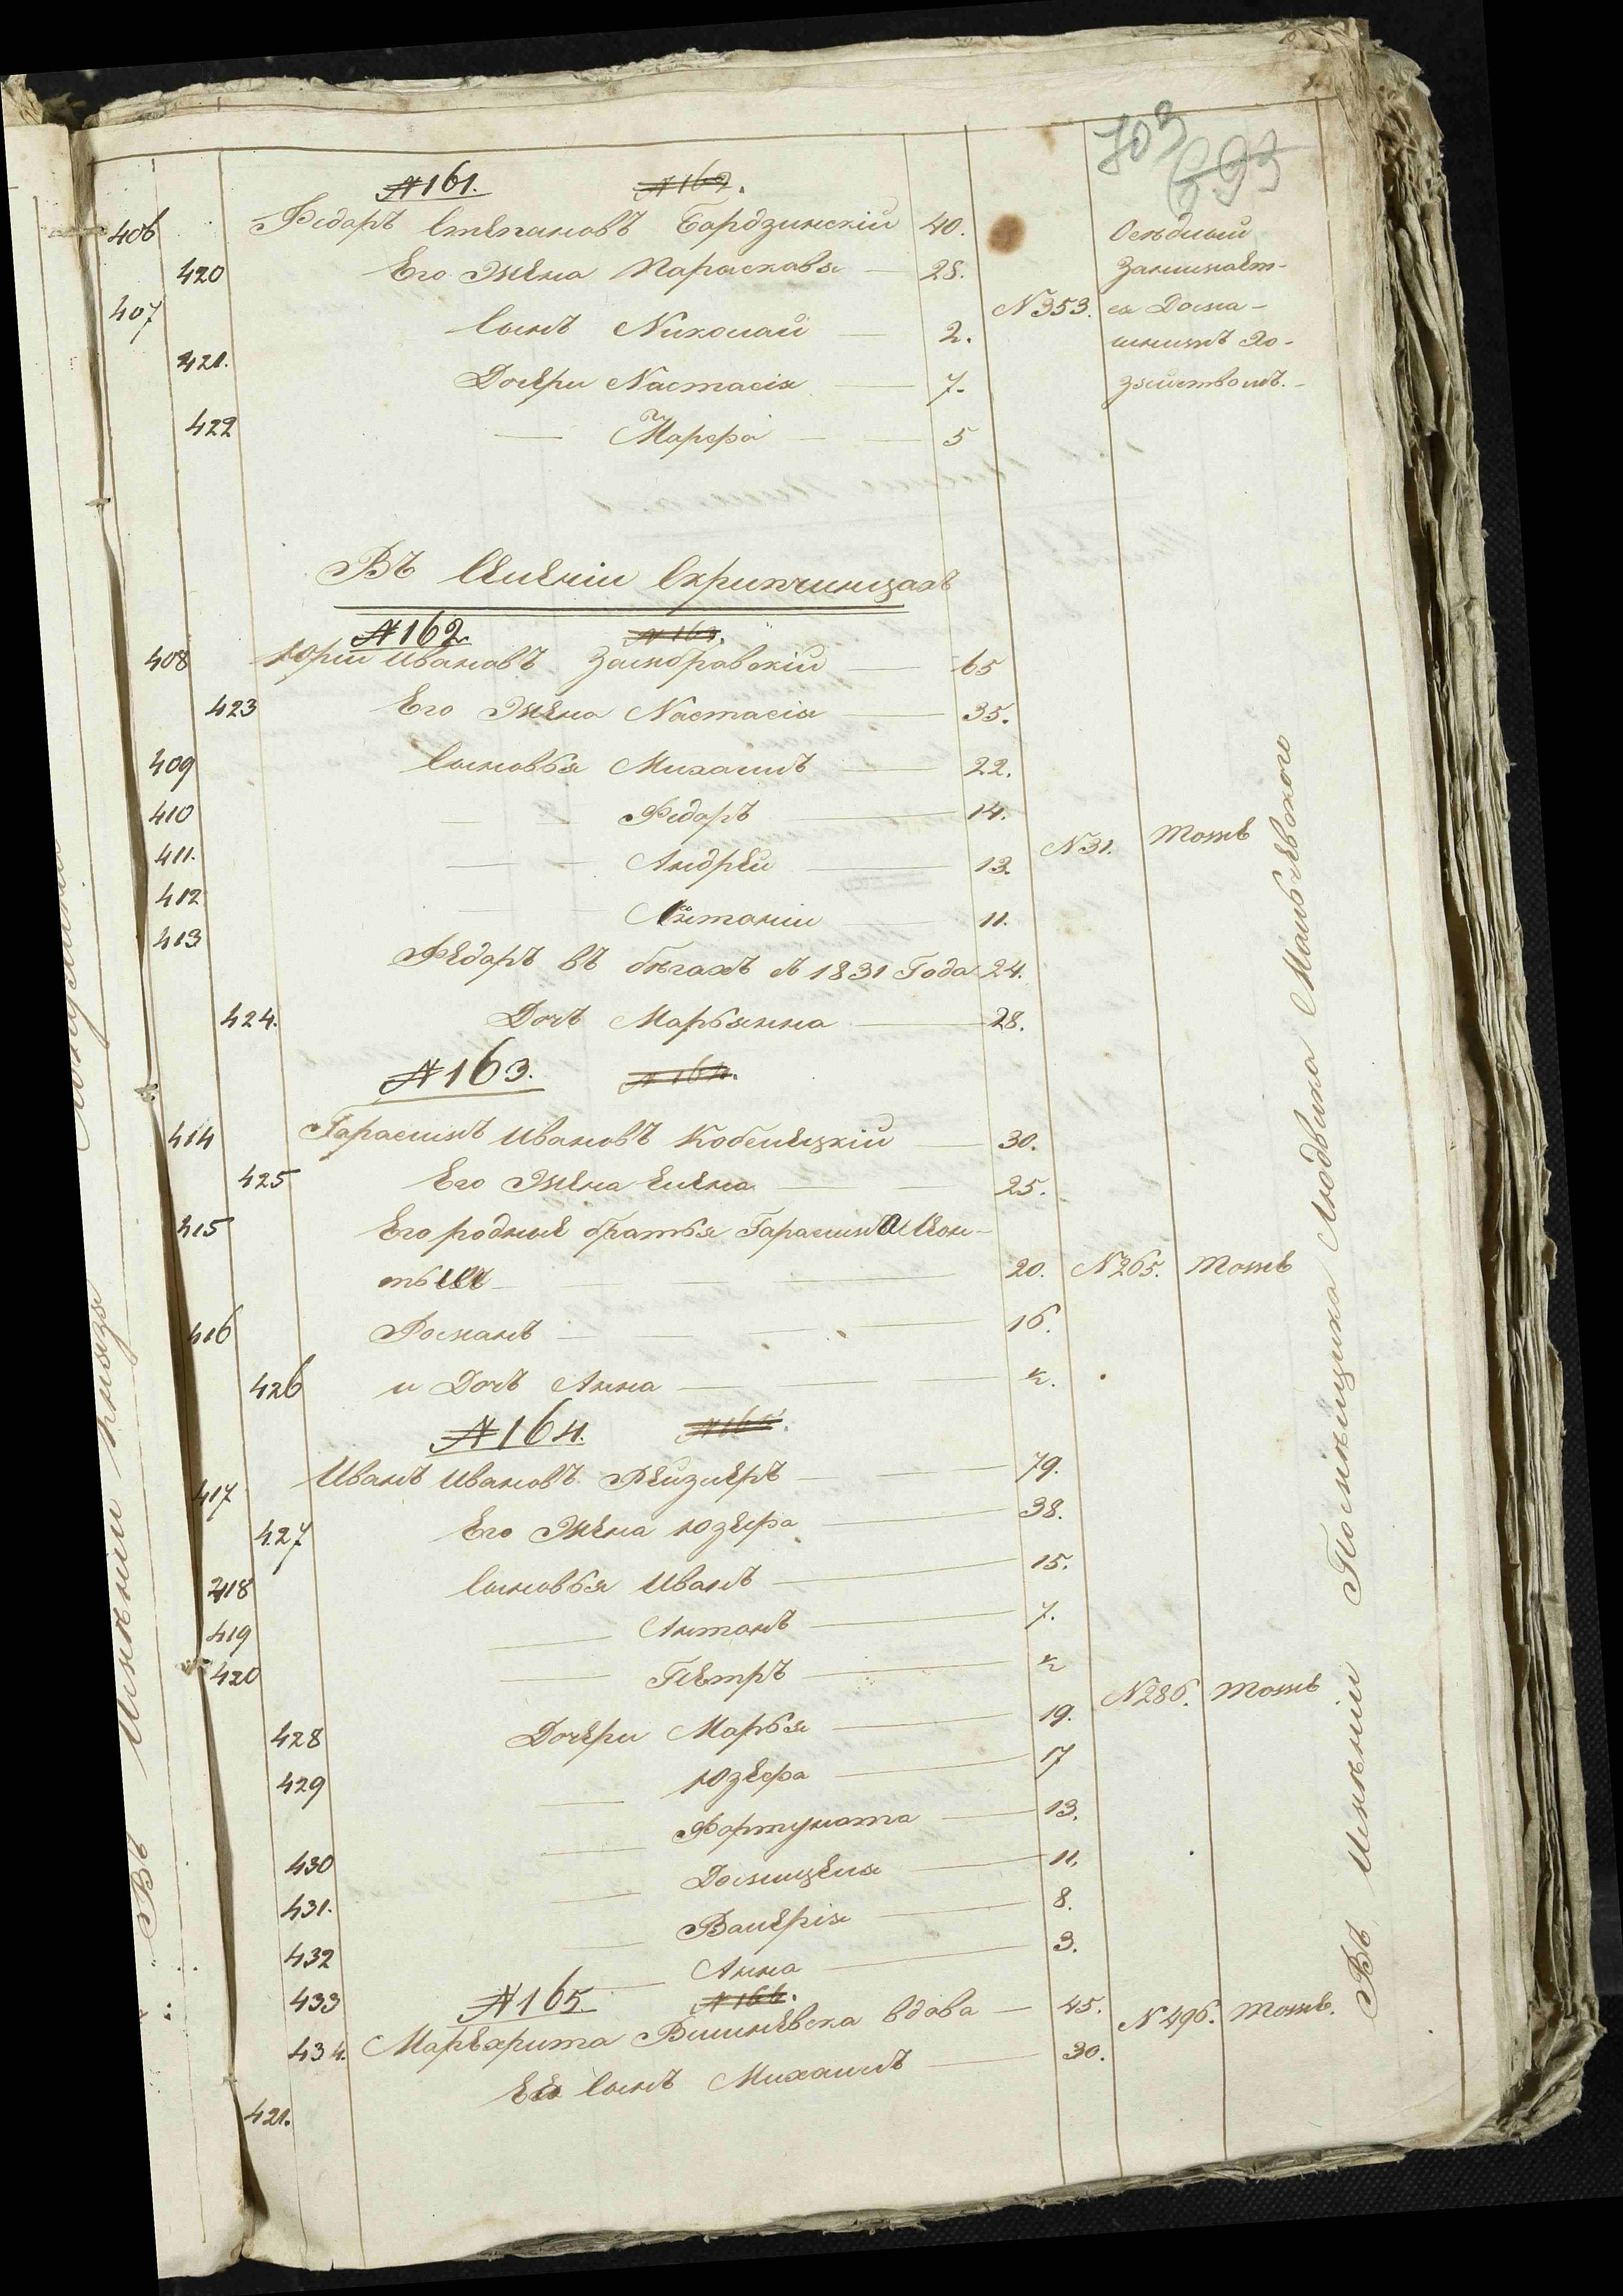 703
693
№ 161. № 162.
406 Федоръ Степановъ Бардзинскій 40. Осѣдлый
420 Его Жена Параскавья 28. Занимает-
407 Сынъ Николай 2. №353. ся Дома-
шнимъ Хо-
421. Дочери Настасія 7. зяйствомъ.
422 Марфа 5
Въ Селеніи Скрипчинцахъ
№ 162. № 163.
408 Юрій Ивановъ Замбравскій 65
423 Его Жена Настасія 35.
409 Сыновья Михаилъ 22.
410 Федоръ 14.
411. Андрей 13. №31. тоже
412 11.
413 Федоръ въ бѣгахъ съ 1831 Года 24.
424. Дочъ Марьянна 28.
№ 163. № 164.
414 Гарасимъ Ивановъ Кобелецкій 30.
425 Его Жена Елена 25.
415 Его родные братья Гарасима Леон-
тый 20. №265. тоже
416 Романъ 16.
426 и Дочъ Анна ½.
№ 164. № 165.
417 Иванъ Ивановъ Рейзлеръ 79.
427 Его Жена Юзефа 38.
418 Сыновья Иванъ 15.
419 Антонъ 7.
420 Петръ ½
№286. тоже
428 Дочери Марья 19.
429 Юзефа 17
Фортуната 13.
430 Домицеля 11.
431. Валерія 8.
432 Анна 3.
433 № 165 № 166.
434. Маргарита Вишневска вдова 45. №496. тоже.
421. Ея Сынъ Михаилъ 30.
Въ Имѣніи Помѣщика Людвика Мальчевскаго
Въ Имѣніи Князя